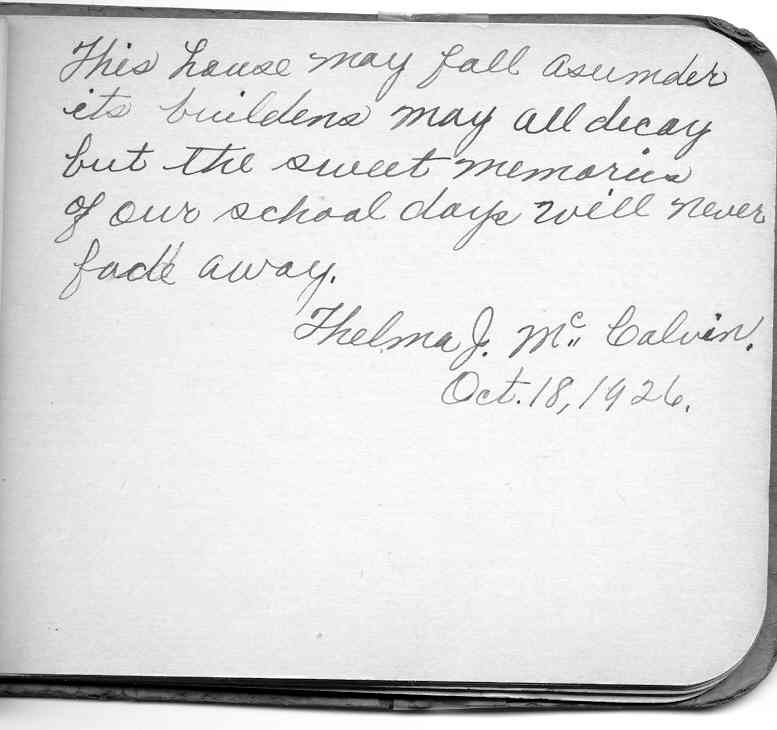 This house may fall asumder
its buildens may all decay
but the sweet memories
of our school days will never
fade away.
Thelma J. Mc Calvin.
Oct. 18, 1926.